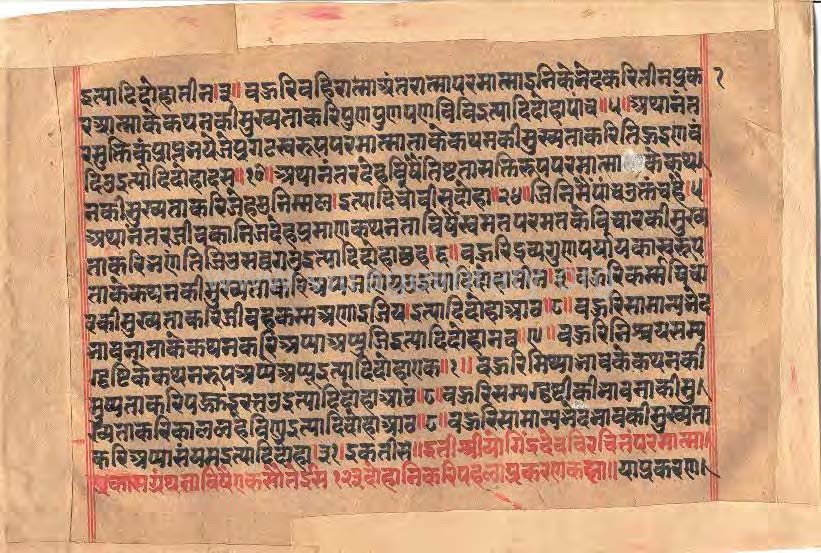 इत्यादिदोहातीन॥३॥ बहुरिबहिरात्माअंतरात्मापरमात्माइनिकेभेदकरितीनप्रक २
रआत्माकेकथनकीमुख्यताकरिपुणुपुणुपणविविइत्यादिदोहापांच॥५॥ अथानंत
रमुक्तिकूंप्राप्तभयेजेप्रगटस्वरूपपरमात्माताकेकथनकीमुख्यताकरितिहुइणवं
दिउइत्यादिदोहादस॥१०॥ अथानंतरदेहविषैतिष्टताशक्तिरूपपरमात्मा केकथ
नकीमुख्यताकरिजेहउनिम्मल।इत्यादिचौवीसदोहा॥२४॥
अथानंतरजीवकानिजदेहप्रमाणकथनताविषैस्वमतपरमतकेविचारकीमुख्य
ताकरि इत्यादिदोहाछह।६॥ बहुरिद्रव्यगुणपर्यायकास्वरूप
ताकेकथनकीमुख्यताकरि इत्यादिदोहातीन।३॥ बहुरिकर्म
कीमुख्यताकरिजीवहकम्मअणाइजिय।इत्यादिदोहाआठ॥८॥ बहुरिसामान्यभेद
भावनाताकेकथनकरिअप्पाअप्पुजिइत्यादिदोहानव॥९॥ बहुरिनिश्चयसम्य
ग्दृष्टिकेकथनरूपअप्पेअप्पुइत्यादिदोहाएक॥१॥ बहुरिमिथ्याभावकेकथनकी
मुख्यताकरिपज्जइरत्तउइत्यादिदोहाआठ॥८॥बहुरिसम्यग्दृष्टीकीभावनाकीमु
ख्यताकरिकाललहेविणुइत्यादिदोहाआठ॥८॥ बहुरिसामान्यभेदभावकीमुख्यता
करिअप्पासंयमइत्यादिदोहा।३१।इकतीस॥इतीश्रीयोगिंद्रदेवविरचितपरमात्मा
प्रकासग्रंथताविषैएकसौतेईस १२३दोहानिकरिपहलाप्रकरणकह्या॥याप्रकरण